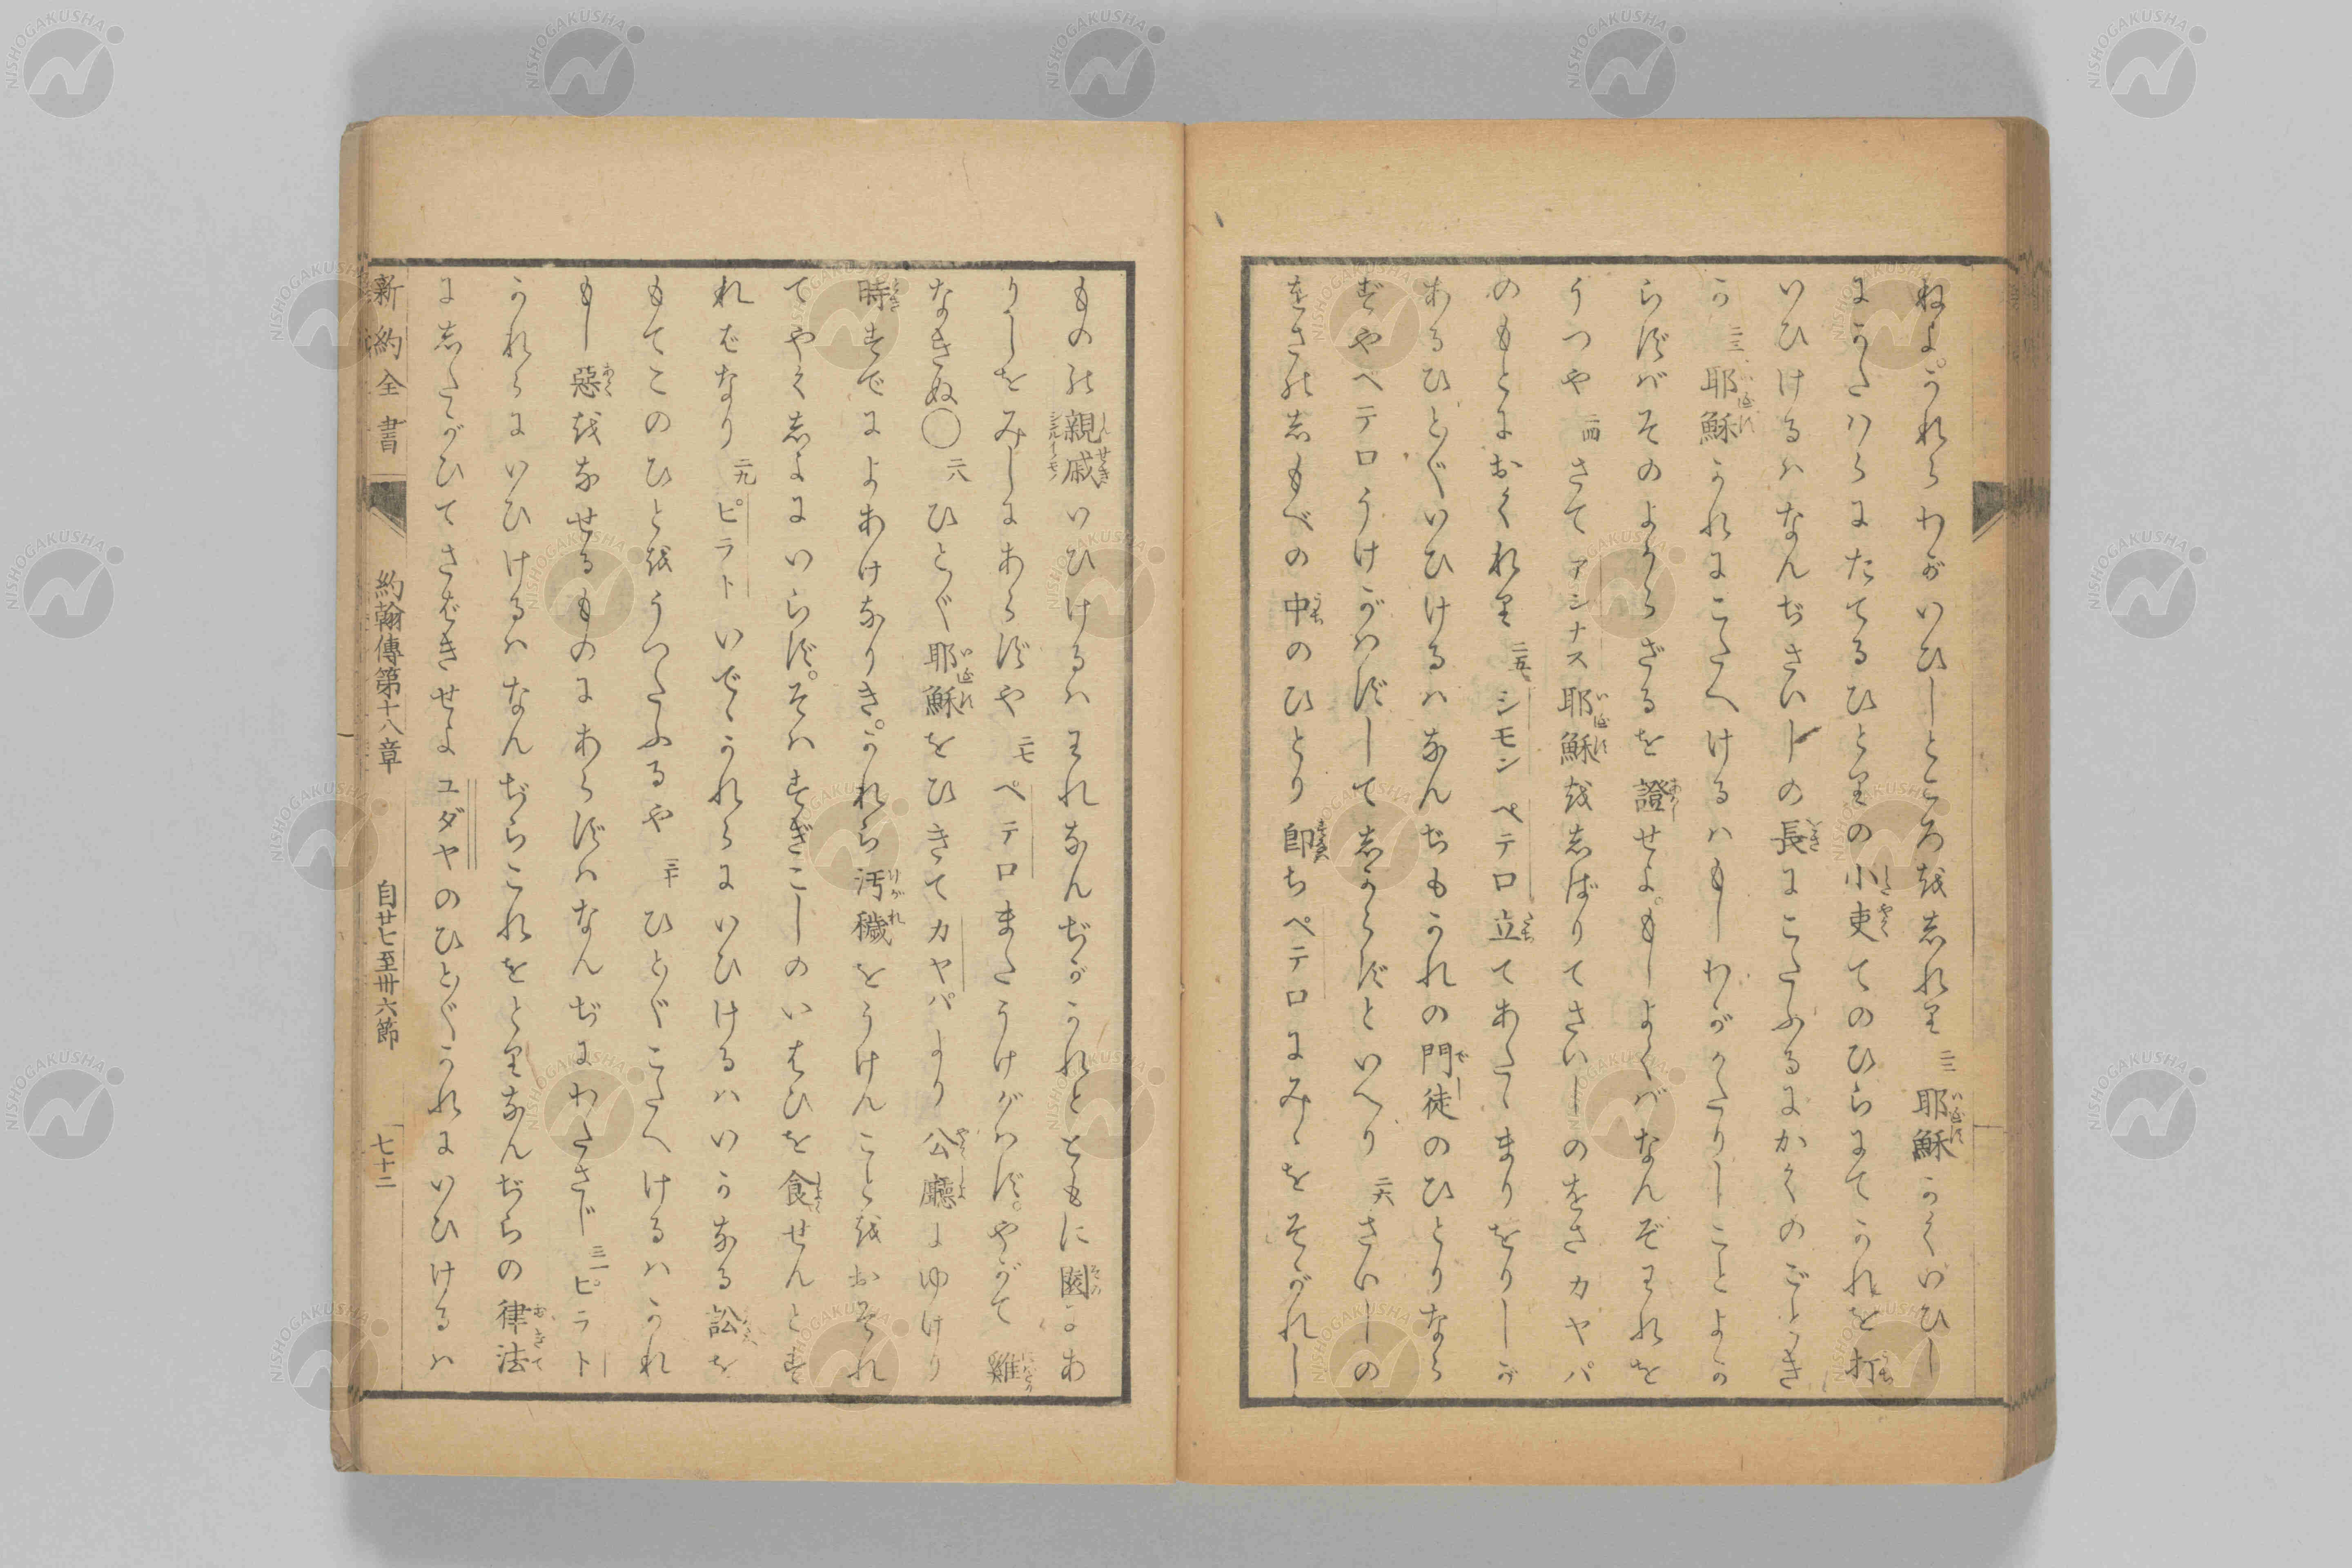 ねよ。かれらわがいひしところをしれり 二二 耶穌かくいひし
にかたはらにたてるひとりの小吏てのひらにてかれを打
いひけるハなんぢさいしの長にこたふるにかくのごとき
か 二三 耶穌かれにこたへけるハもしわがかたりしことよか
らずバそのよからざるを證せよ。もしよくバなんぞわれを
うつや 二四 さてアンナス耶穌をしばりてさいしのをさカヤパ
のもとにおくれり 二五 シモンペテロ立てあたゝまりをりしが
あるひと〴〵いひけるハなんぢもかれの門徒のひとりなら
ずやペテロうけがはずしてしからずといへり 二六 さいしの
をさのしもべの中のひとり即ちペテロにみゝをそがれし
ものの親戚いひけるハわれなんぢがかれとともに園にあ
りしをみしにあらずや 二七 ペテロまたうけがはず。やがて雞
なきぬ〇 二八 ひと〴〵耶穌をひきてカヤパより公廳にゆけり
時すでによあけなりき。かれら汚穢をうけんことをおそれ
てやくしよにいらず。そハすぎこしのいはひを食せんとす
ればなり 二九 ピラトいでゝかれらにいひけるハいかなる訟を
もてこのひとをうつたふるや 三十 ひと〴〵こたへけるハかれ
もし惡をなせるものにあらずハなんぢにわたさじ 三一 ピラト
かれらにいひけるハなんぢらこれをとりなんぢらの律法
にしたがひてさばきせよユダヤのひと〴〵かれにいひけるハ
新約全書 約翰傳第十八章 自廿七至卅六節 七十二